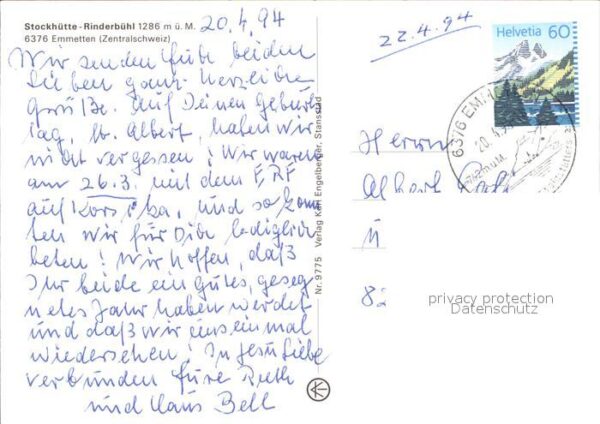 Stockhütte - Rinderbühl 1286 m ü. M.
6376 Emmetten (Zentralschweiz)
20.4.94
Wir senden Euch beiden
Lieben ganz herzliche
Grüße. Auf Deinen Geburts
tag, lb. Albert, haben wir
nicht vergessen! Wir waren
am 26.3. mit dem ERF
auf Korsika, und so konn
ten wir für Dich lediglich
beten! Wir hoffen, daß
Ihr beide ein gutes, geseg
netes Jahr haben werdet
und daß wir uns einmal
wiedersehen! In Jesu Liebe
verbunden Eure Ruth
und Klaus Bell
Nr. 9775 Verlag Karl Engelberger, Stansstad
22.4.94
Helvetia 60
6376 EMM
20.4.9
Herrn
Albert
82
privacy protection
Datenschutz